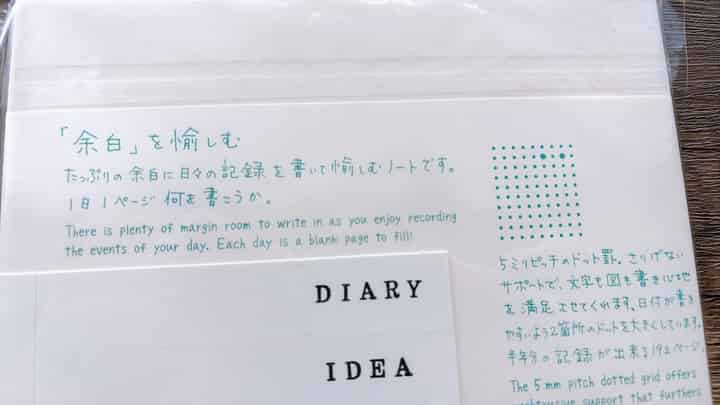 「余白」を愉しむ
たっぷりの余白に日々の記録を書いて愉しむノートです。
1日1ページ 何を書こうか。
There is plenty of margin room to write in as you enjoy recording
the events of your day. Each day is a blank page to fill!
DIARY
IDEA
5ミリピッチのドット罫。さりげない
サポートで、文字も図も書き心地
を満足させてくれます。日付が書き
やすいよう2箇所のドットを大きくしています。
半年分の記録が出来る192ページ
The 5 mm pitch dotted grid offers
support that furthers